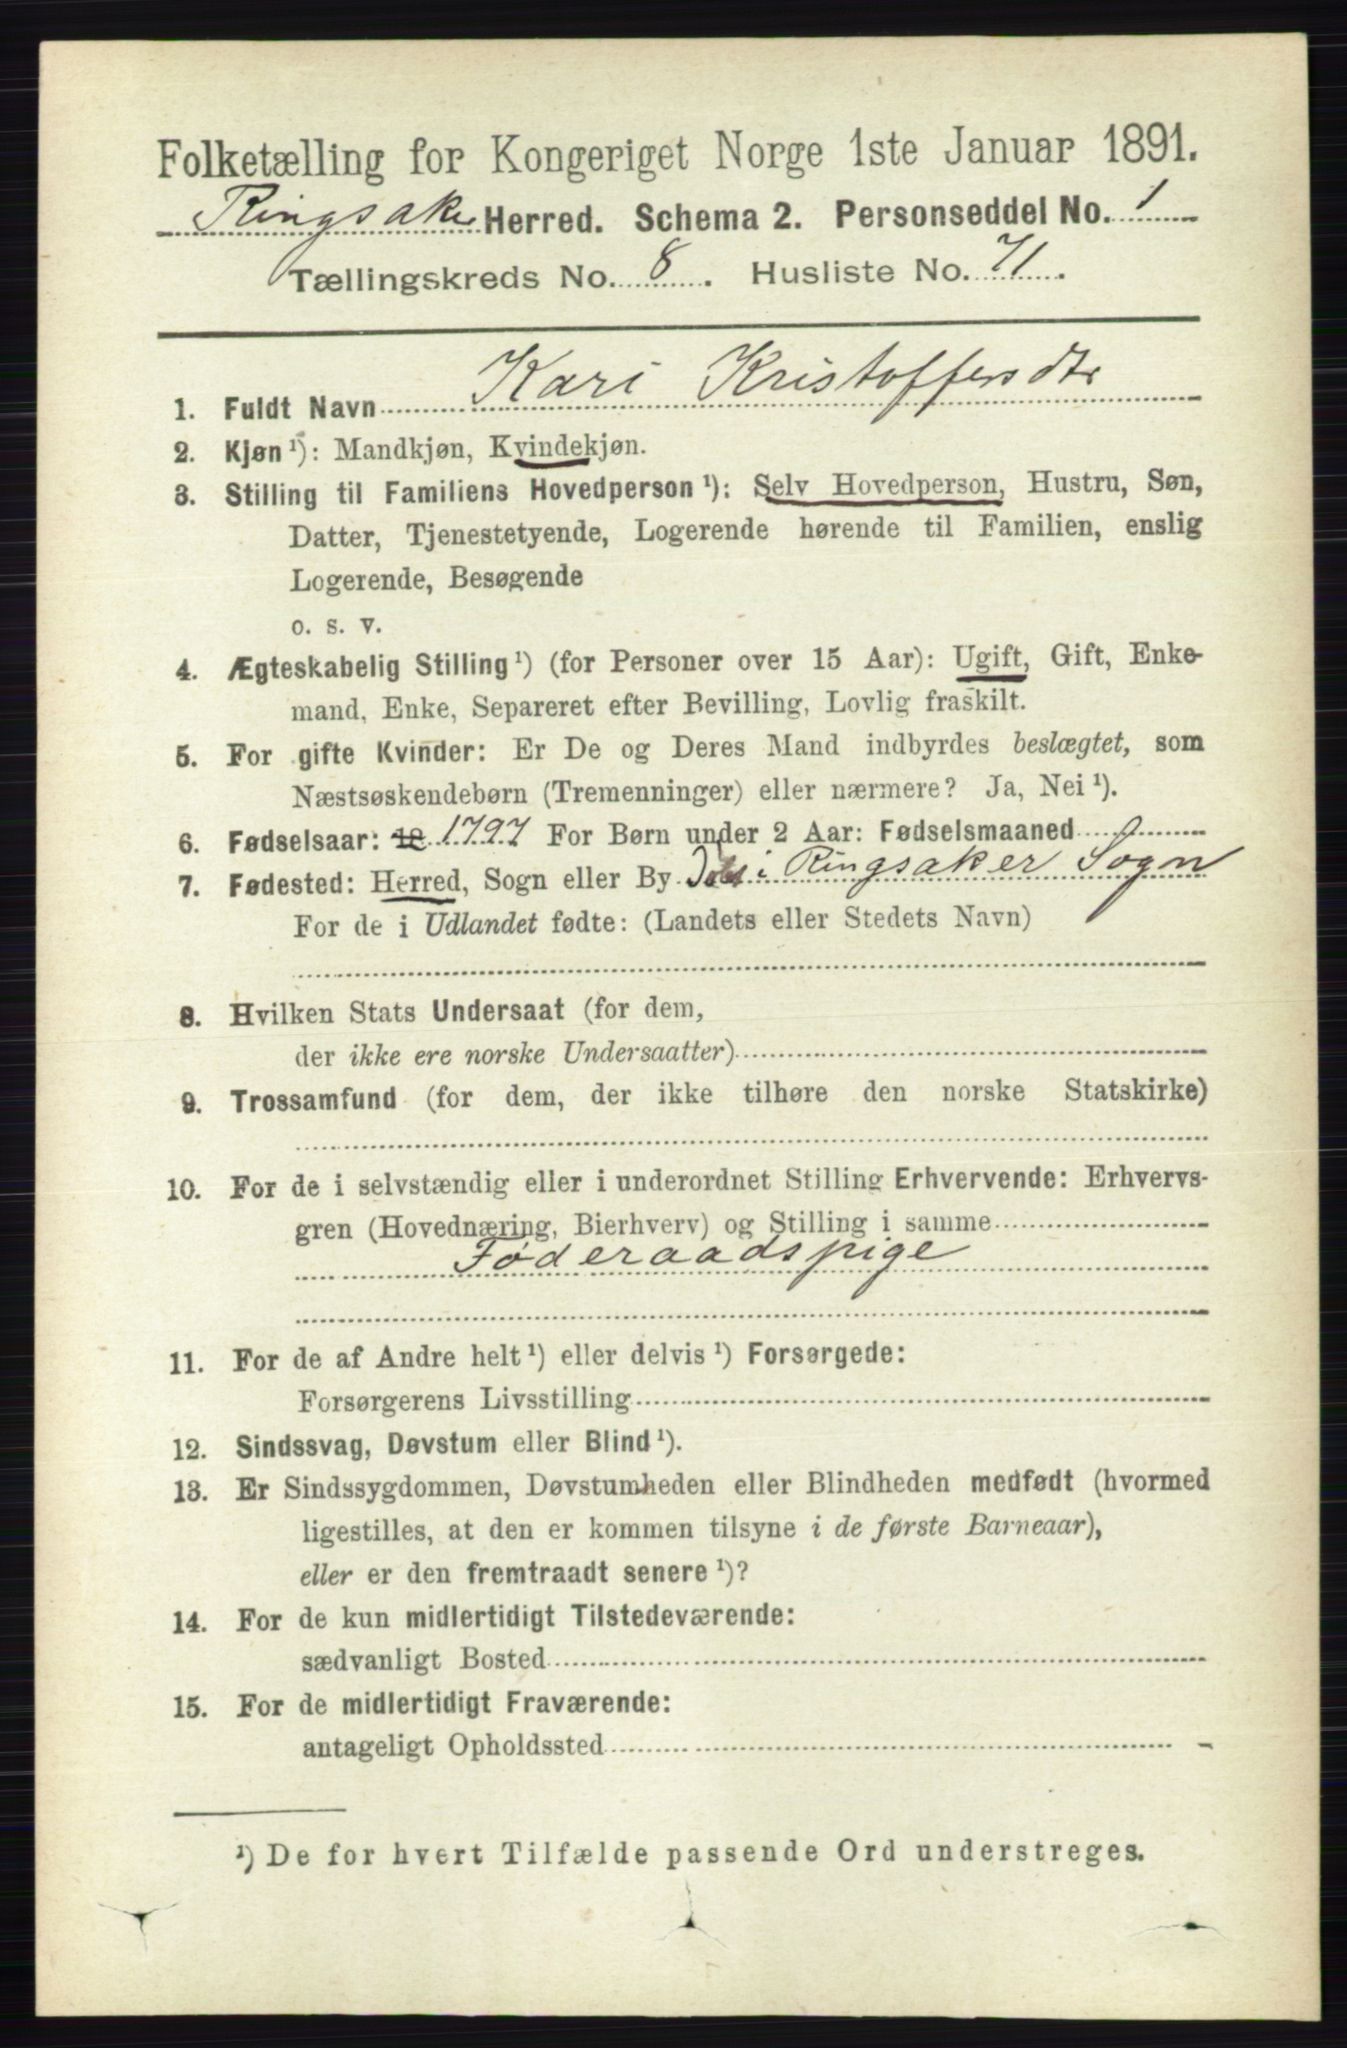 Folketælling for Kongeriget Norge 1ste Januar 1891.
Ringsaker Herred. Schema 2. Personseddel No. 1
Tællingskreds No. 8. Husliste No. 71.
1. Fuldt Navn Kari Kristoffersdtr
2. Kjøn ¹): Mandkjøn, Kvindekjøn.
3. Stilling til Familiens Hovedperson ¹): Selv Hovedperson, Hustru, Søn,
Datter, Tjenestetyende, Logerende hørende til Familien, enslig
Logerende, Besøgende
o. s. v.
4. Ægteskabelig Stilling ¹) (for Personer over 15 Aar): Ugift, Gift, Enke-
mand, Enke, Separeret efter Bevilling, Lovlig fraskilt.
5. For gifte Kvinder: Er De og Deres Mand indbyrdes beslægtet, som
Næstsøskendebørn (Tremenninger) eller nærmere? Ja, Nei ¹).
6. Fødselsaar: 18 1797 For Børn under 2 Aar: Fødselsmaaned
7. Fødested: Herred, Sogn eller By i Ringsaker Sogn
For de i Udlandet fødte: (Landets eller Stedets Navn)
8. Hvilken Stats Undersaat (for dem,
der ikke ere norske Undersaatter)
9. Trossamfund (for dem, der ikke tilhøre den norske Statskirke)
10. For de i selvstændig eller i underordnet Stilling Erhvervende: Erhvervs-
gren (Hovednæring, Bierhverv) og Stilling i samme
Føderaadspige
11. For de af Andre helt ¹) eller delvis ¹) Forsørgede:
Forsørgerens Livsstilling
12. Sindssvag, Døvstum eller Blind ¹).
13. Er Sindssygdommen, Døvstumheden eller Blindheden medfødt (hvormed
ligestilles, at den er kommen tilsyne i de første Barneaar),
eller er den fremtraadt senere ¹)?
14. For de kun midlertidigt Tilstedeværende:
sædvanligt Bosted
15. For de midlertidigt Fraværende:
antageligt Opholdssted
¹) De for hvert Tilfælde passende Ord understreges.